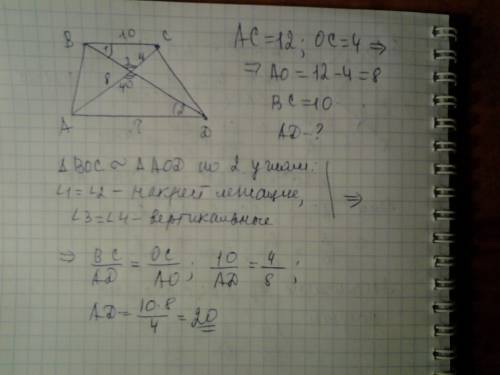 B 10 C
1 3 4
8 4 O
2
A ? D
AC=12; OC=4 ⇒
⇒ AO=12-4=8
BC=10
AD-?
△BOC ~ △AOD по 2 углам:
∠1=∠2 - накрест лежащие,
∠3=∠4 - вертикальные
⇒
⇒ BC/AD = OC/AO; 10/AD = 4/8;
AD = 10·8/4 = 20